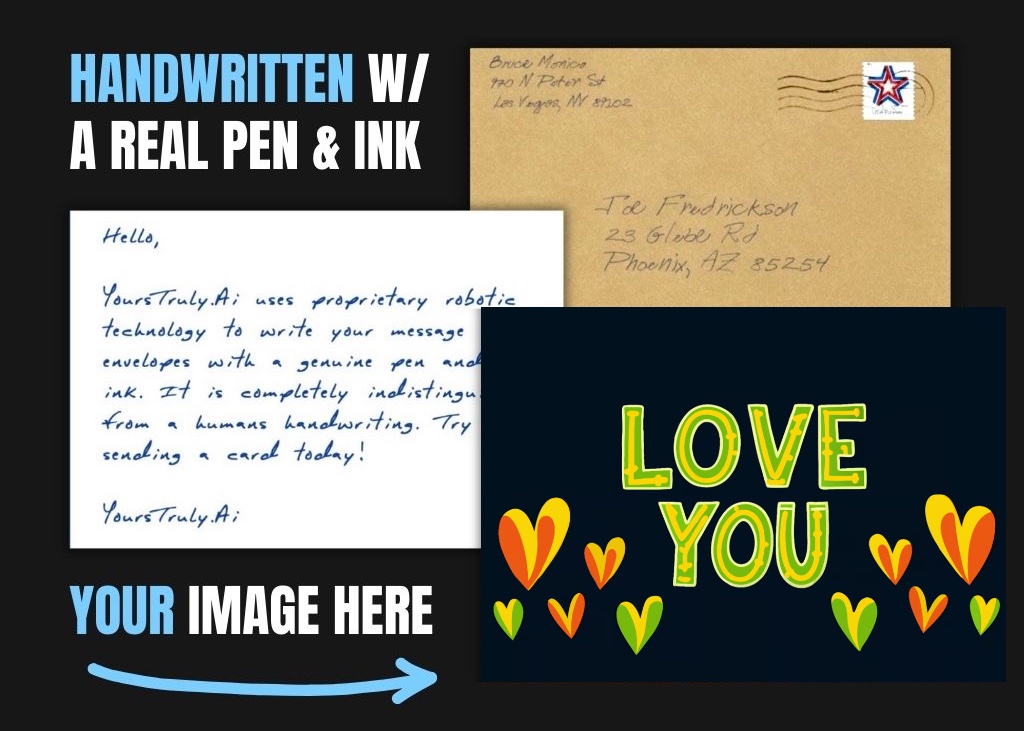 HANDWRITTEN W/
A REAL PEN & INK
Bruce Monico
970 N Peter St
Las Vegas, NV 89102
Joe Fredrickson
23 Glebe Rd
Phoenix, AZ 85254
Hello,
YoursTruly.Ai uses proprietary robotic
technology to write your message
envelopes with a genuine pen and
ink. It is completely indistingu
from a humans handwriting. Try
sending a card today!
YoursTruly.Ai
LOVE
YOU
YOUR IMAGE HERE